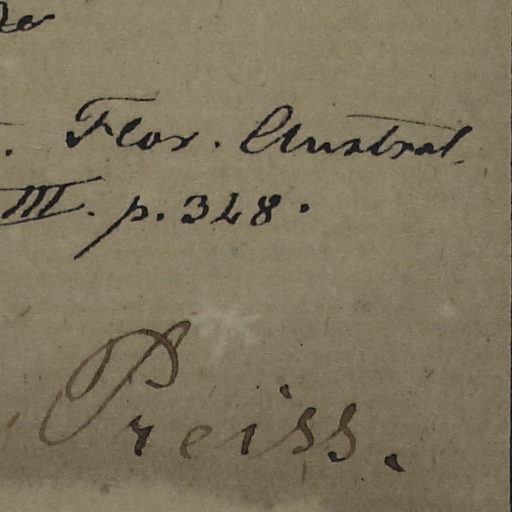 Flor. Austral.
III. p. 328.
Preiss.